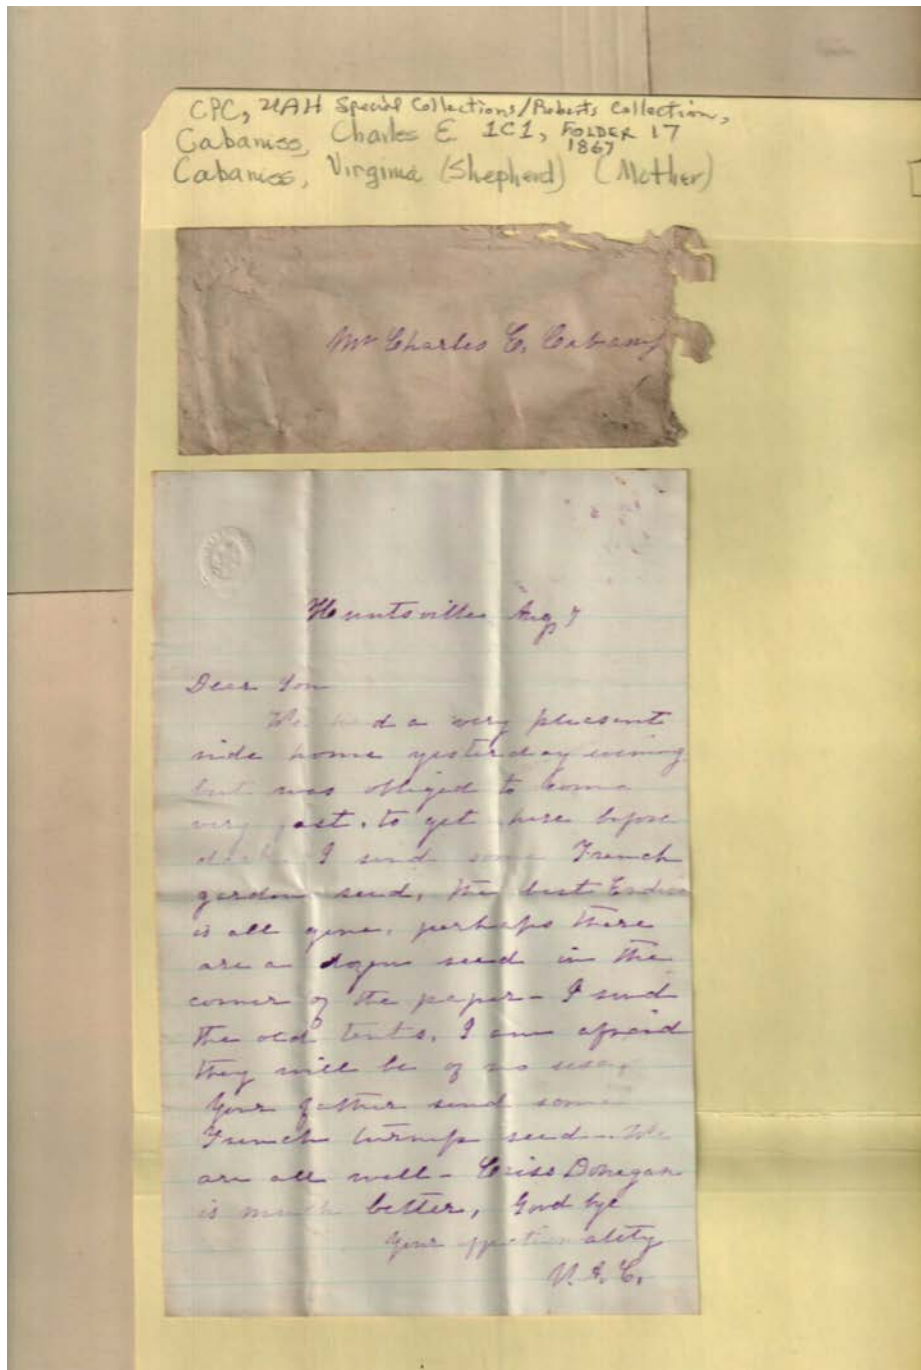 CPC, UAH Special Collections/Roberts Collection,
Cabaniss, Charles E 1C1, FOLDER 17
1867
Cabaniss, Virginia (Shepherd) (Mother)
Mr Charles E. Cabaniss
Huntsville Aug 7
Dear Son
We had a very pleasent
ride home yesterday evening
but was obliged to come
very fast. to get here before
dark I send some French
garden seed, the best
is all gone, perhaps there
are a dozen seed in the
corner of the paper - I send
the old tents, I am afraid
they will be of no use.
Your father send some
French turnip seed - We
are all well - Criss Donegan
is much better, Good bye
Your affectionality
V. A. C.